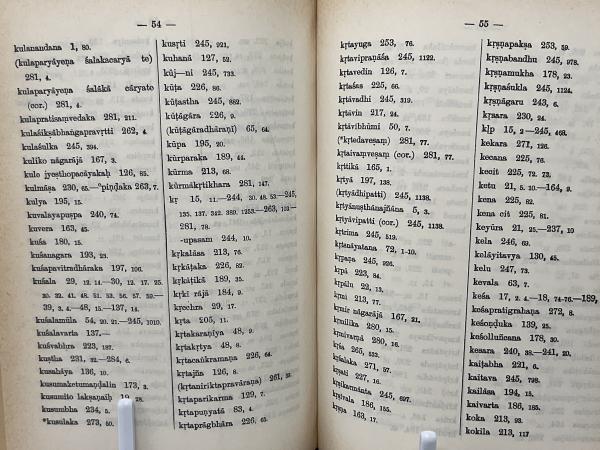 — 54 —
kulanandana 1, 80.
(kulaparyāyena śalakacaryā te)
281, 4.
kulaparyāyeṇa śalākā cāryate
(cor.) 281, 4.
kulapratisaṃvedaka 281, 211.
kulaśikṣābhaṅgapravṛtti 262, 4.
kulaśulka 245, 394.
kuliko nāgarājā 167, 3.
kulo jyeṣṭhopacāyakaḥ 126, 85.
kulmāṣa 230, 65.—°piṇḍaka 263, 7.
kulya 195, 15.
kuvalayapuṣpa 240, 74.
kuvera 163, 45.
kuśa 180, 15.
kuśanagara 193, 23.
kuśapavitradhāraka 197, 106.
kuśala 29, 12. 14.—30, 12. 17. 25.
30, 32. 41. 48. 51. 53. 56. 57. 59.—
39, 3. 4.—48, 15.—137, 14.
kuśalamūla 54, 20. 21.—245, 1010.
kuśalavarta 137.—
kuśvabhra 223, 187.
kuṣṭha 231, 32.—284, 6.
kusahāya 136, 10.
kusumaketumaṇḍalin 173, 3.
kusumito lakṣaṇaiḥ
kusumbha 234, 5.
*kusulaka 273, 50.
kusṛti 245, 921.
kuhanā 127, 52.
kūj—ni 245, 733.
kūṭa 226, 86.
kūṭastha 245, 882.
kūṭāgāra 226, 9.
(kūṭāgāradhāraṇī) 65, 64.
kūpa 195, 20.
kūrparaka 189, 44.
kūrma 213, 68.
kūrmākṛtikhara 281, 147.
kṛ 15, 11.—244, 30. 48. 53.—245,
135. 137. 342. 389. 1253.—263, 102—
281, 78.
-upasam 244, 10.
kṛkalāsa 213, 76.
kṛkāṭaka 226, 82.
kṛkāṭikā 189, 35.
kṛki rājā 184, 9.
kṛcchra 29, 17.
kṛta 205, 11.
kṛtakaraṇīya 48, 9.
kṛtakṛtya 48, 8.
kṛtacaṅkramaṇa 226, 64.
kṛtajña 126, 8.
(kṛtaniriktapravāraṇa) 261, 32.
kṛtaparikarma 129, 7.
kṛtapuṇyatā 83, 4.
kṛtaprāgbhāra 226, 65.
— 55 —
kṛtayuga 253, 76.
kṛtavipraṇāśa 245, 1122.
kṛtavedin 126, 7.
kṛtaśas 225, 66.
kṛtāvadhi 245, 319.
kṛtāvin 217, 24.
kṛtāvibhūmi 50, 7.
(*kṛtedaveṣam) 281, 77.
kṛtaivaṃveṣaṃ (cor.) 281, 77.
kṛttikā 165, 1.
kṛtyā 197, 138.
(kṛtyādhipatti) 245, 1138.
kṛtyānuṣṭhānajñāna 5, 3.
kṛtyāvipatti (cor.) 245, 1138.
kṛtrima 245, 519.
kṛtsnāyatana 72, 1-10.
kṛpaṇa 245, 926.
kṛpā 223, 84.
kṛpālu 22, 13.
kṛmi 213, 77.
kṛmir nāgarājā 167, 21.
kṛmilika 280, 15.
kṛmivarṇā 280, 16.
kṛśa 265, 553.
kṛśalaka 271, 57.
kṛṣati 227, 16.
kṛṣikarmānta 245, 697.
kṛṣīvala 186, 155.
kṛṣṇa 163, 17.
kṛṣṇapakṣa 253, 59.
kṛṣṇabandhu 245, 978.
kṛṣṇamukha 178, 23.
kṛṣṇaśukla 245, 1124.
kṛṣṇāgaru 243, 6.
kṛsara 230, 24.
kḷp 15, 2—245, 468.
kekara 271, 126.
kecana 225, 76.
kecit 225, 72. 73.
ketu 21, 5. 10.—164, 9.
kena 225, 82.
kena cit 225, 81.
keyūra 21, 25.—237, 10
kela 246, 69.
kelāyitavya 130, 45.
kelu 247, 73.
kevala 63, 7.
keśa 17, 2. 4.—18, 74-76.—189,
keśapratigrahaṇa 272, 8.
keśoṇḍuka 139, 25.
keśolluñcana 178, 30.
kesara 240, 38.—241, 20.
kaiṭabha 221, 6.
kaitava 245, 798.
kailāsa 194, 15.
kaivarta 186, 185.
koka 213, 93.
kokila 213, 117